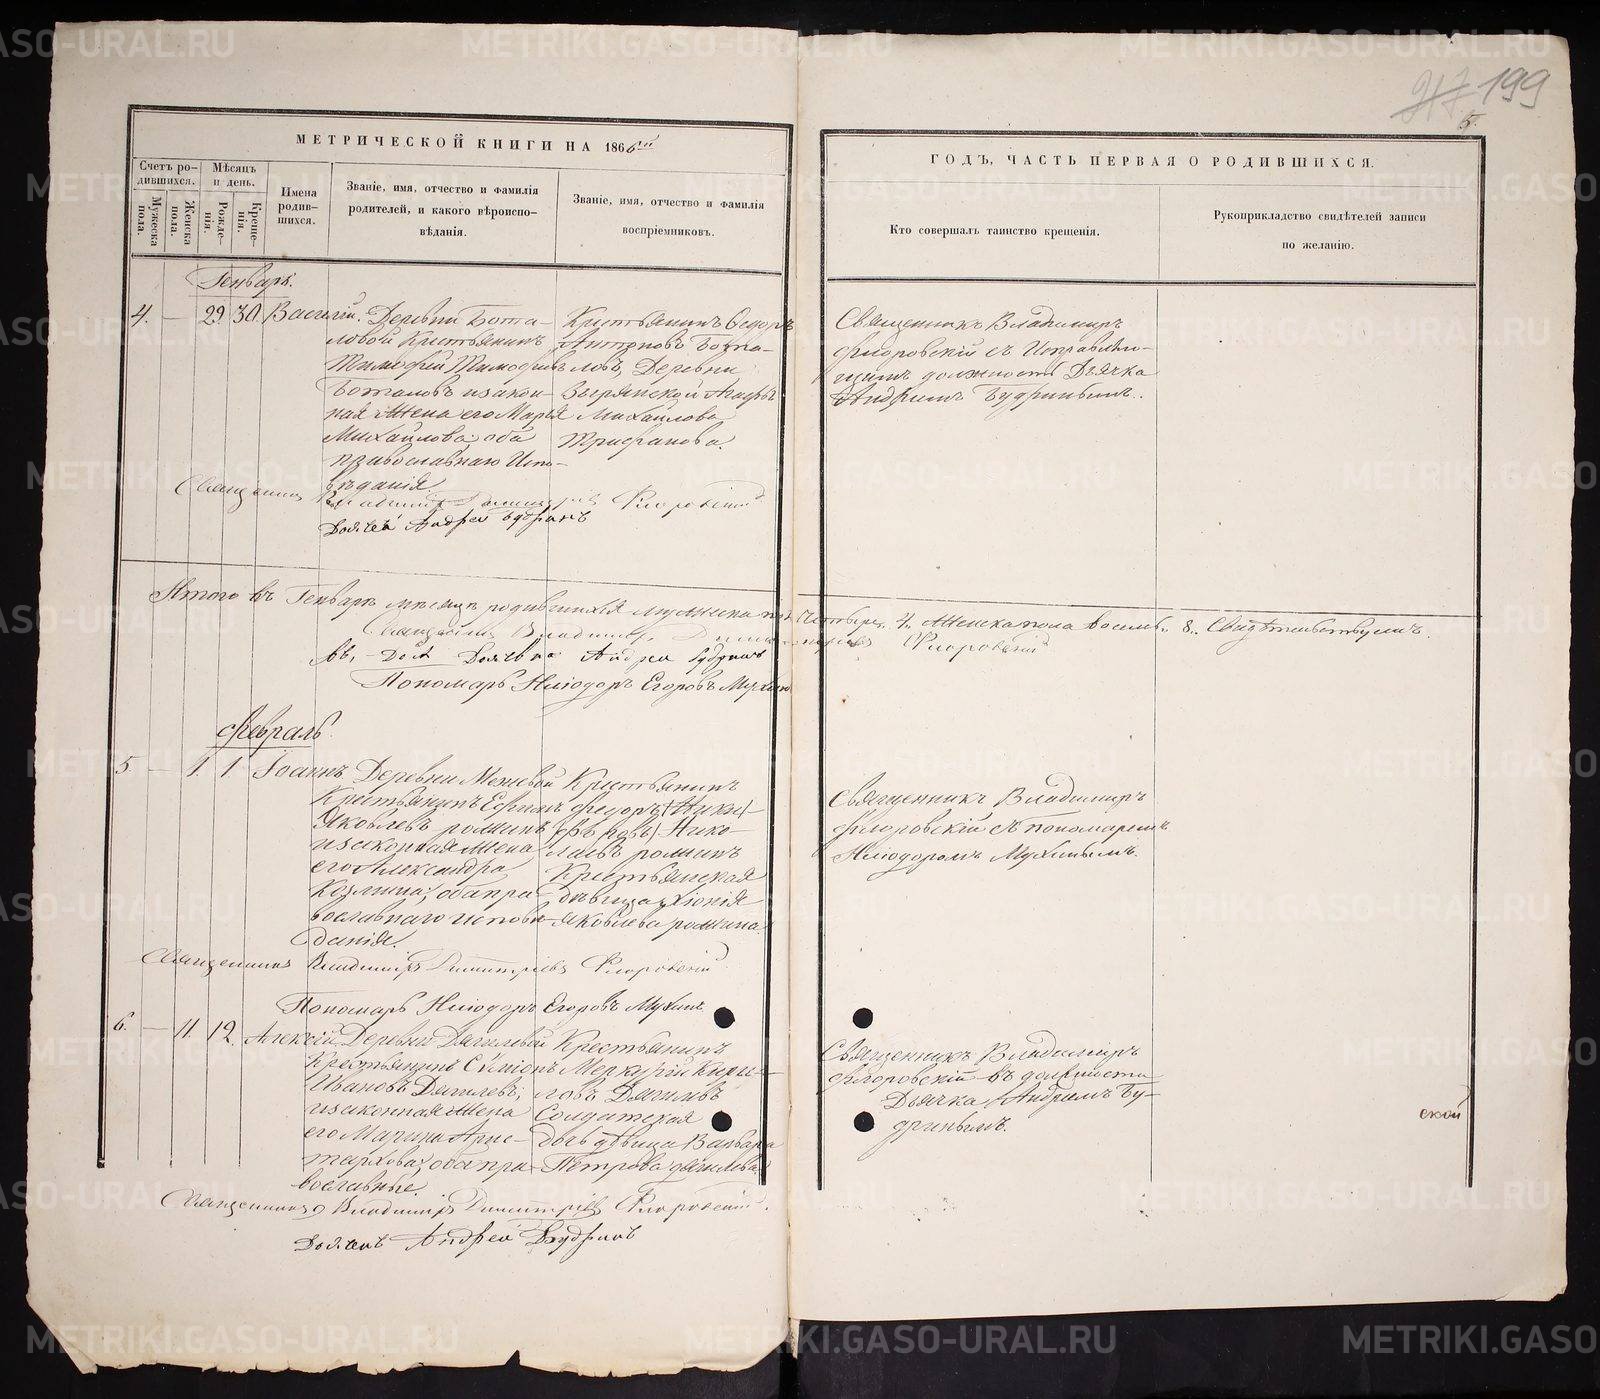 199
5.
МЕТРИЧЕСКОЙ КНИГИ НА 186
ГОДЪ, ЧАСТЬ ПЕРВАЯ О РОДИВШИХСЯ.
Счетъ ро-
дившихся.
Мужеска
пола.
Женска
пола.
Мѣсяцъ
и день.
Рожде-
нія.
Креще-
нія.
Имена
родив-
шихся.
Званіе, имя, отчество и фамилія
родителей, и какого вѣроиспо-
вѣданія.
Званіе, имя, отчество и фамилія
воспріемниковъ.
Кто совершалъ таинство крещенія.
Рукоприкладство свидѣтелей записи
по желанію.
Генварь.
4. — 29 30. Василій.
Деревни Бота-
ловой Крестьянинъ
Тимофей Тимофѣевъ
Боталовъ и закон-
ная жена его Марья
Михайлова, оба
православнаго Испо-
вѣданія
Крестьянинъ Ѳедоръ
Антоновъ Бота-
ловъ, Деревни
Михайлова
Трифанова.
Священникъ Владимиръ
Флоровскій съ Исправляю-
щимъ должность Дьячка
Андреемъ Будринымъ.
Священникъ Владимиръ Димитріевъ Флоровскій
Дьячекъ Андрей Будринъ
Итого въ Генварѣ мѣсяцѣ родившихся мужеска пола четыре, 4, Женска пола восемь, 8. Свидѣтельствуемъ.
Священникъ Владимиръ Димитріевъ Флоровскій
Въ Дол Дьячка Андрей Будринъ
Пономарь Иліодоръ Егоровъ Мухинъ
Февраль.
5. — 1. 1. Іоаннъ
Деревни Межевой
Крестьянинъ Ефимъ
Яковлевъ
и законная Жена
его Александра
Козмина; оба пра-
вославнаго исповѣ-
данія.
Крестьянинъ
Федоръ
Нико-
лаевъ
Крестьянская
дѣвица Хіонія
Яковлева
Священникъ Владимиръ
Флоровскій съ пономаремъ
Иліодоромъ Мухинымъ.
Священникъ Владимиръ Димитріевъ Флоровскій
Пономарь Иліодоръ Егоровъ Мухинъ
6. — 11. 12. Алексій
Деревни Дягилевой
Крестьянинъ Симіонъ
Ивановъ Дягилевъ;
и законная Жена
его Марина Арис-
тархова; оба пра-
вославные.
Крестьянинъ
Меркурій Кири-
ловъ Дягилевъ
Солдатская
дочь дѣвица Варвара
Петрова Дягилева
Священникъ Владимиръ
Флоровскій въ должности
Дьячка Андреемъ Бу-
дринымъ.
ской
Священникъ Владимиръ Димитріевъ Флоровскій.
Дьячекъ Андрей Будринъ